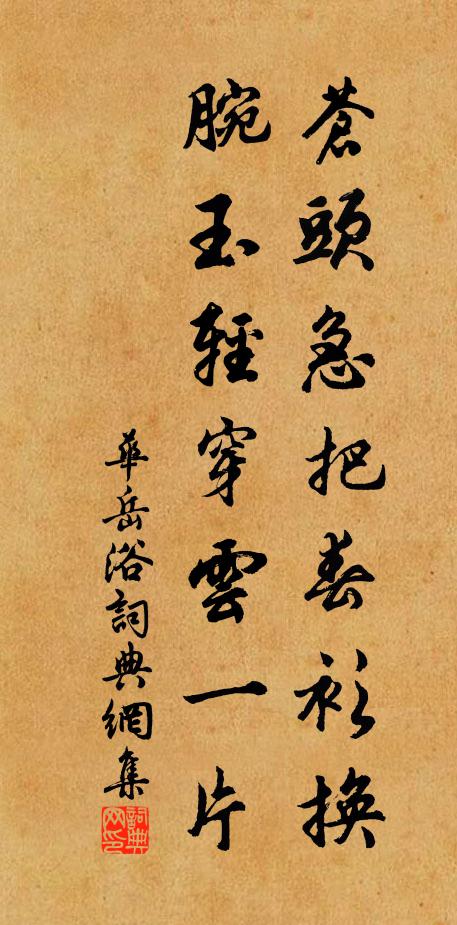 蒼頭急把春衫換
腕玉輕穿雲一片
華岳浴詞典網集
詞典網印